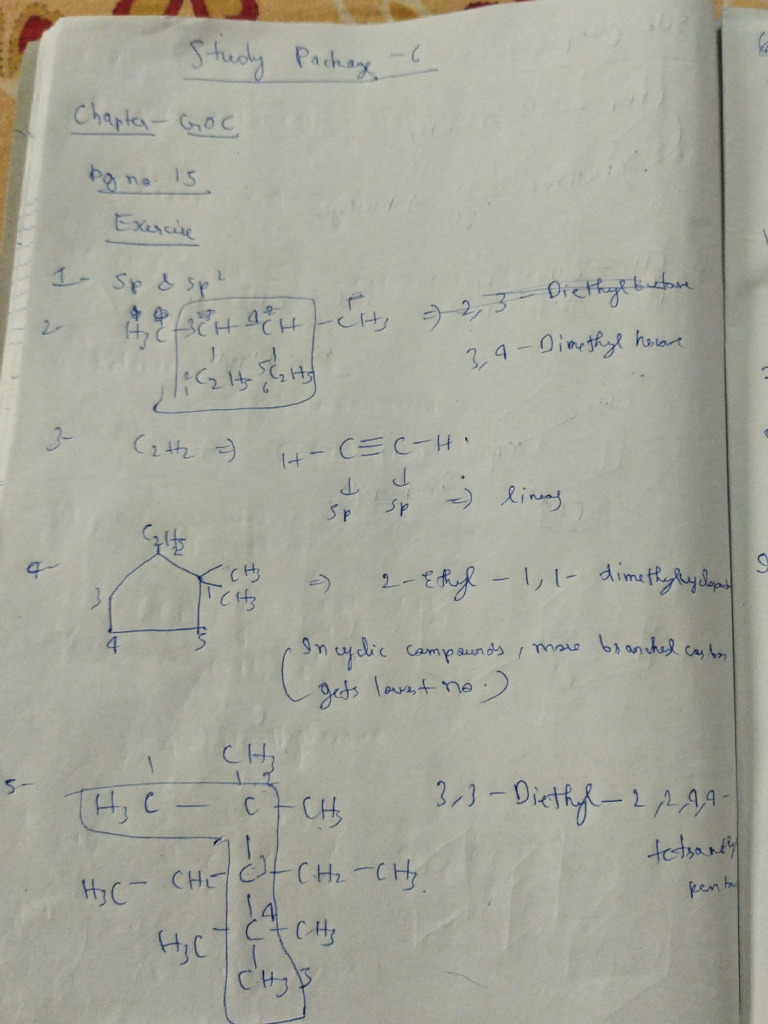 Study Package - 6
Chapter - GOC
pg no. 15
Exercise
1- sp & sp²
2- H₃C - CH - CH - CH₃ ⇒ 2,3 - Diethylbutane
C₂H₅ C₂H₅
3,4 - Dimethyl hexane
3- C₂H₂ ⇒ H - C ≡ C - H.
↓ ↓
sp sp ⇒ linear
4- C₂H₅
CH₃
CH₃
1
3
4 5
⇒ 2 - Ethyl - 1,1 - dimethylcyclopen
(In cyclic compounds, more branched carbon
gets lowest no.)
5- 1 CH₃
H₃C - C - CH₃ 3,3 - Diethyl - 2,2,4,4-
H₃C - CH₂ - C - CH₂ - CH₃
tetramethy
penta
H₃C - C - CH₃
CH₃ 5